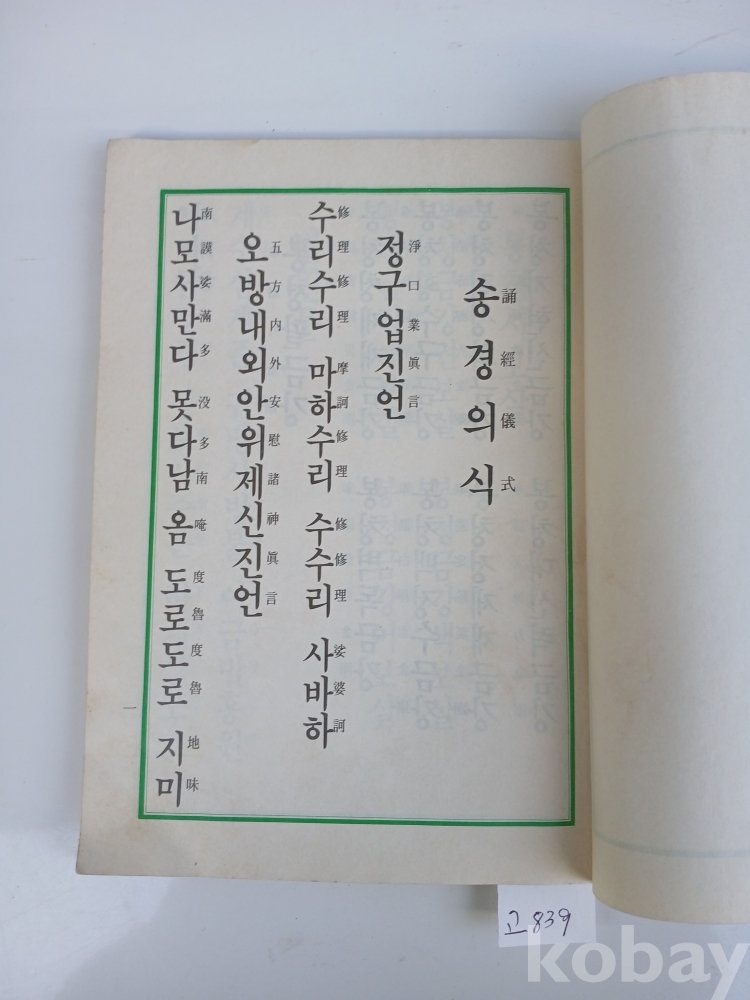 송경의식
誦經儀式
정구업진언
淨口業眞言
수리수리 마하수리 수수리 사바하
修理修理 摩訶修理 修修理 娑婆訶
오방내외안위제신진언
五方内外安慰諸神眞言
나모사만다 못다남 옴 도로도로 지미
南謨娑滿多 没多南 唵 度魯度魯 地味
一
고839
kobay